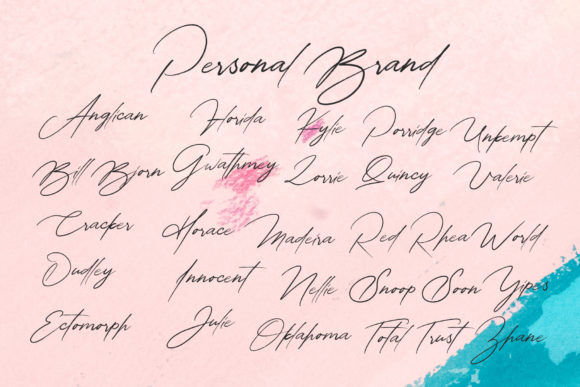 Personal Brand
Anglican Florida Kylie Porridge Unkempt
Bill Bjorn Gwathmey Lorrie Quincy Valerie
Cracker Horace Madeira Red Rhea World
Dudley Innocent Nellie Snoop Soon Yipes
Ectomorph Julie Oklahoma Total Trust Zhane